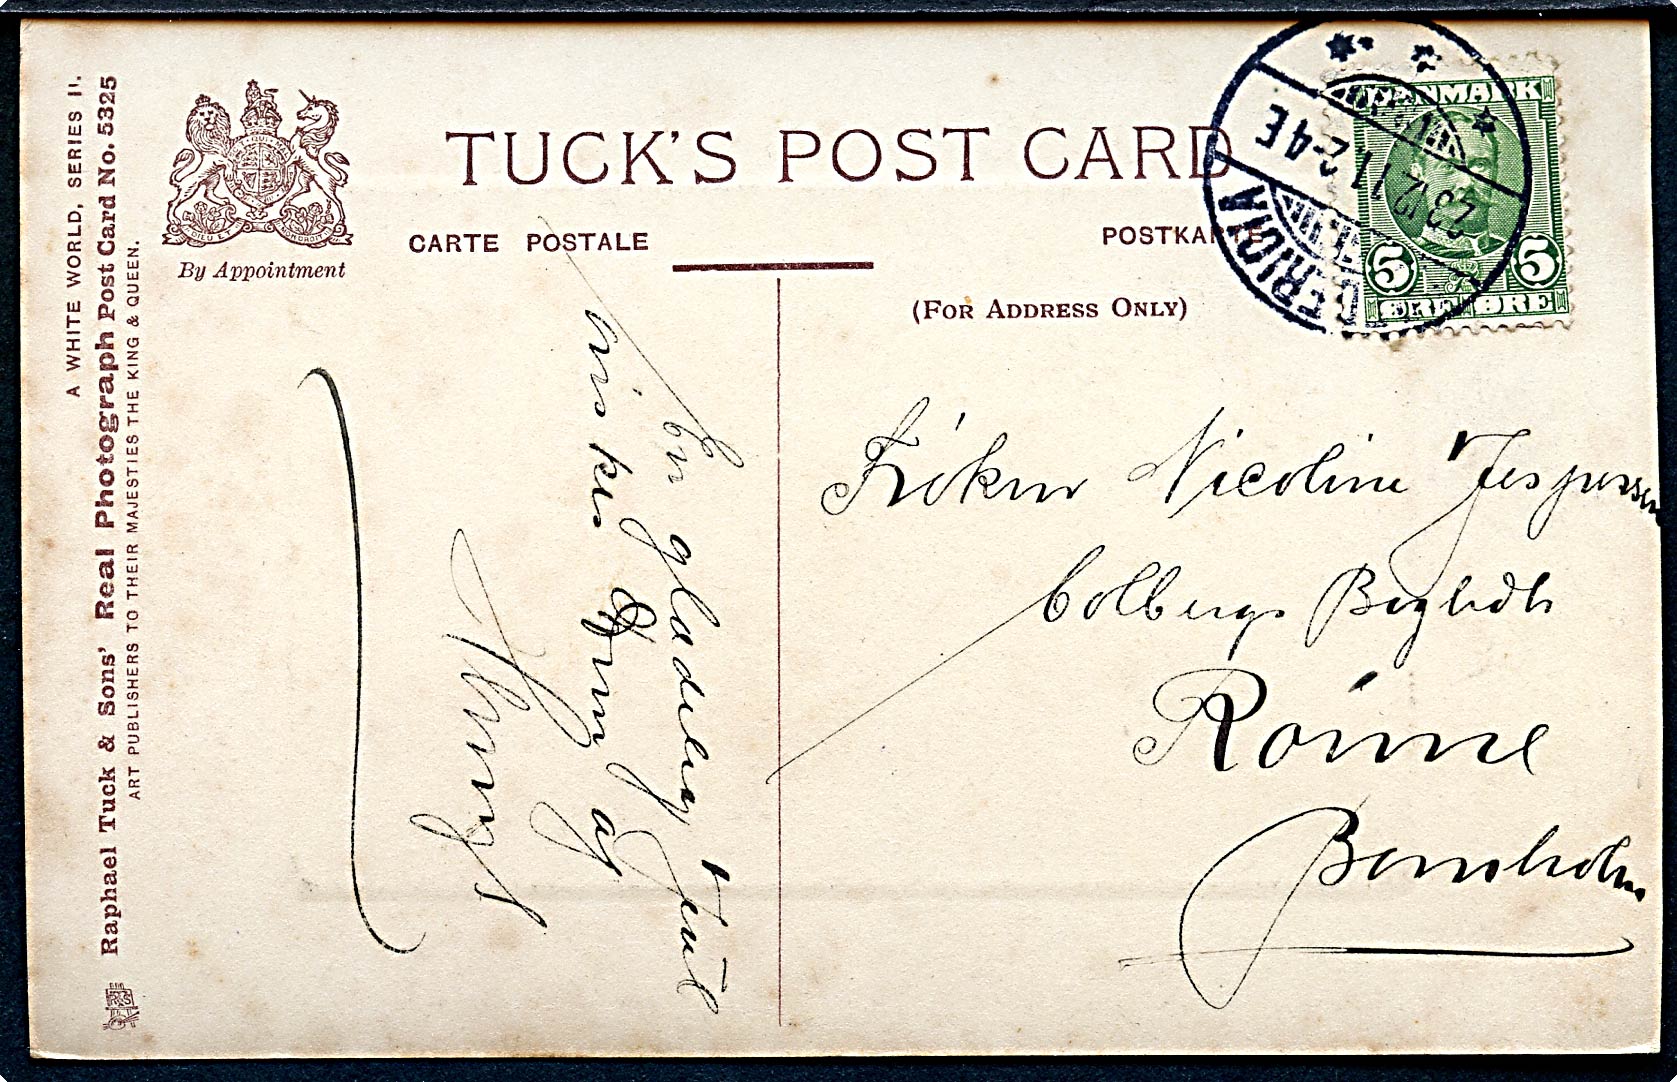 A WHITE WORLD, SERIES II.
Raphael Tuck & Sons' Real Photograph Post Card No. 5325
ART PUBLISHERS TO THEIR MAJESTIES THE KING & QUEEN.
By Appointment
TUCK'S POST CARD
CARTE POSTALE
POSTKARTE
(FOR ADDRESS ONLY)
DANMARK
5 5
ØRE ØRE
FREDERICIA
23.12.11 2-4E
En glædelig Jul
ønskes Dem af
Frøken Nicoline Jespersen
Colbergs Boghdl
Rönne
Bornholm